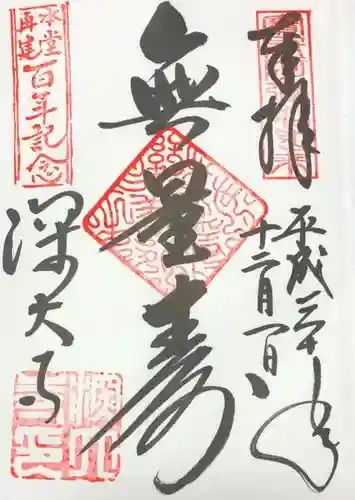 奉拝
平成二十年
十二月一日
無量寿
本堂再建
百年記念
深大寺